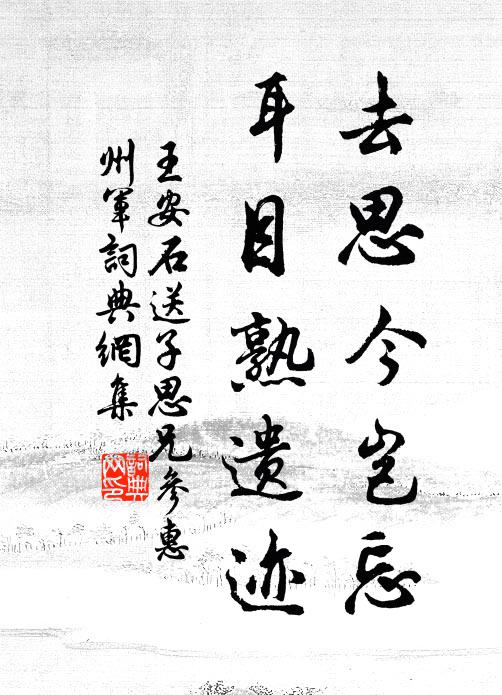 去思今岂忘
耳目熟遗迹
王安石送子思兄参惠
州军詞典網集
詞典
网印